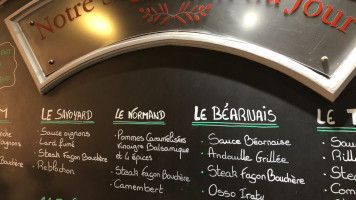 Notre
du Jour
LE SAVOYARD
Sauce oignons
Lard fumé
Steak Façon Bouchère
Reblochon
LE NORMAND
Pommes Caramélisées
Vinaigre Balsamique
et 4 épices
Steak Façon Bouchère
Camembert
LE BÉARNAIS
Sauce Béarnaise
Andouille Grillée
Steak Façon Bouchère
Osso Iraty
LE
Sau
Rill
Steak
Com